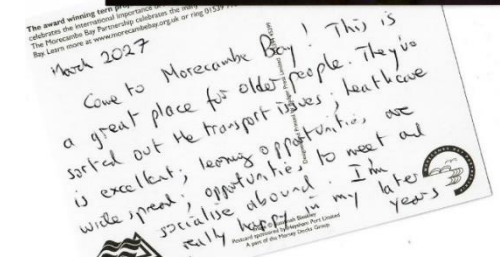 The award winning tern pro
celebrates the international importance o
The Morecambe Bay Partnership celebrates the
Bay. Learn more at www.morecambebay.org.uk or ring 01539
March 2027
Come to Morecambe Bay! This is
a great place for older people. They've
sorted out the transport issues; healthcare
is excellent; learning opportunities are
widespread; opportunities to meet and
socialise abound. I'm
really happy in my later
years
Postcard sponsored by Heysham Port Limited
A part of the Mersey Docks Group